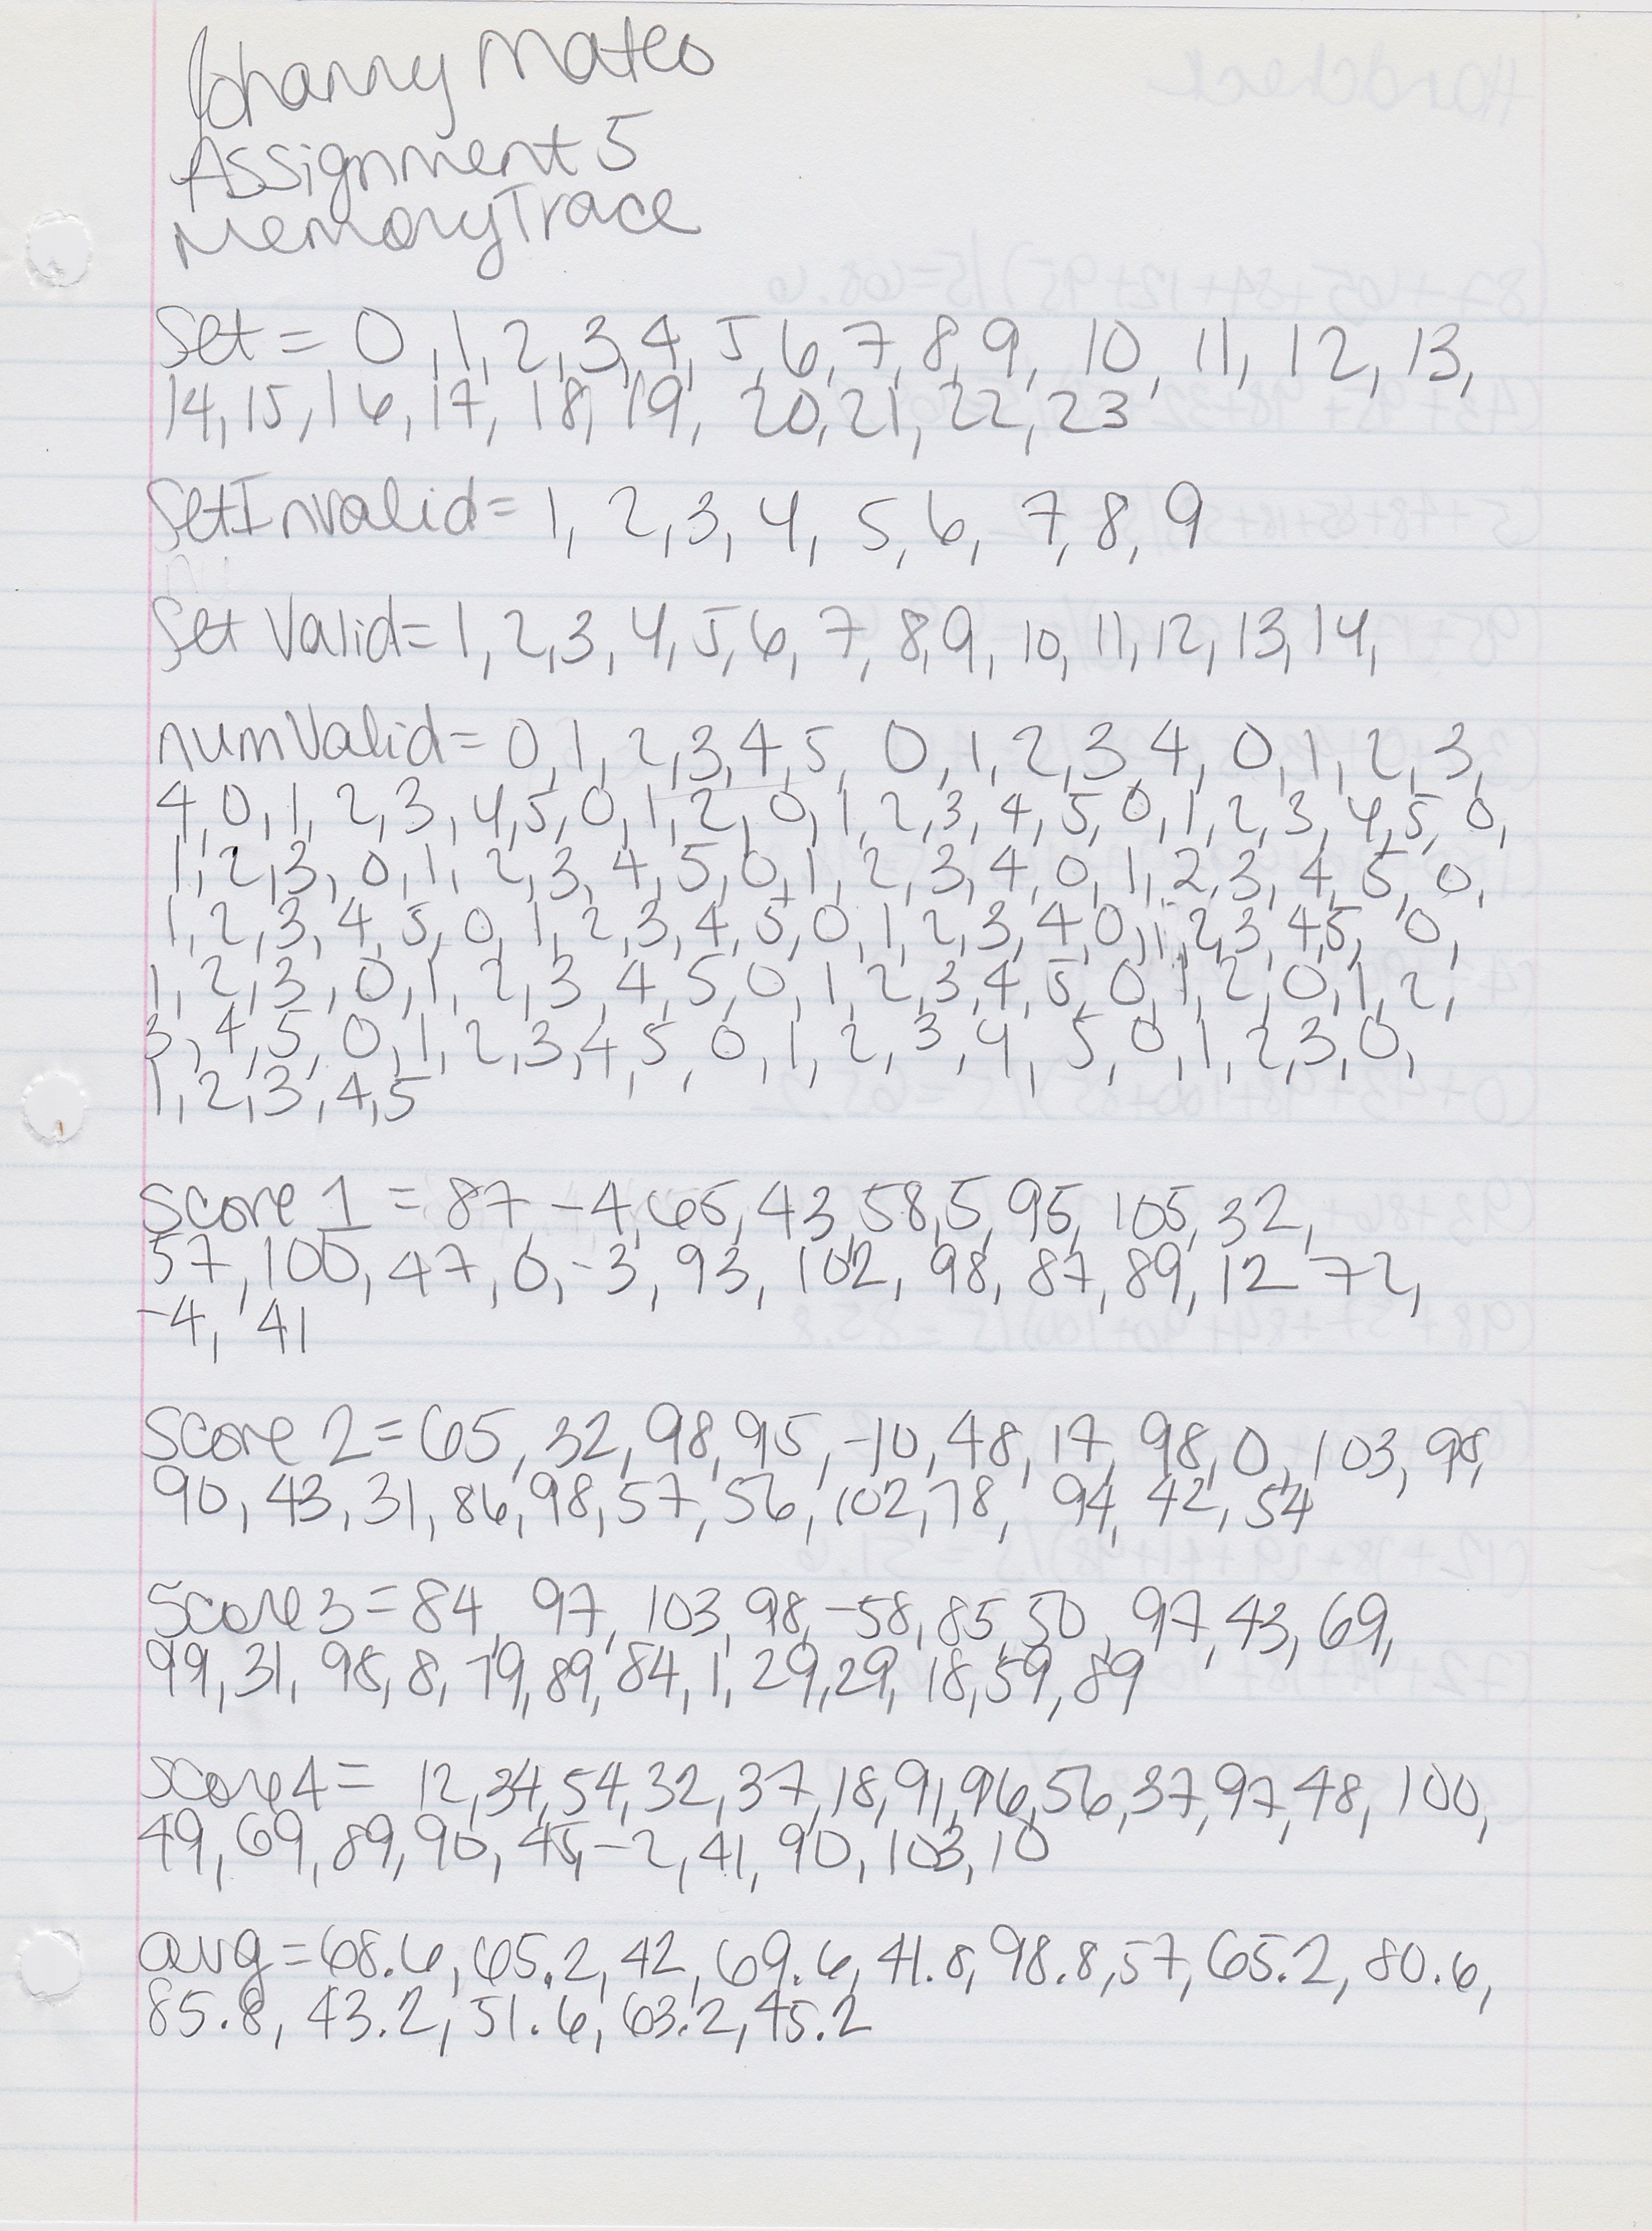 Johanny Mateo
Assignment 5
Memory Trace
Set = 0, 1, 2, 3, 4, 5, 6, 7, 8, 9, 10, 11, 12, 13,
14, 15, 16, 17, 18, 19, 20, 21, 22, 23
SetInvalid = 1, 2, 3, 4, 5, 6, 7, 8, 9
Set Valid = 1, 2, 3, 4, 5, 6, 7, 8, 9, 10, 11, 12, 13, 14,
numValid = 0, 1, 2, 3, 4, 5, 0, 1, 2, 3, 4, 0, 1, 2, 3,
4, 0, 1, 2, 3, 4, 5, 0, 1, 2, 0, 1, 2, 3, 4, 5, 0, 1, 2, 3, 4, 5, 0,
1, 2, 3, 0, 1, 2, 3, 4, 5, 0, 1, 2, 3, 4, 0, 1, 2, 3, 4, 5, 0,
1, 2, 3, 4, 5, 0, 1, 2, 3, 4, 5, 0, 1, 2, 3, 4, 0, 1, 2, 3, 4, 5, 0,
1, 2, 3, 0, 1, 2, 3, 4, 5, 0, 1, 2, 3, 4, 5, 0, 1, 2, 0, 1, 2,
3, 4, 5, 0, 1, 2, 3, 4, 5, 0, 1, 2, 3, 4, 5, 0, 1, 2, 3, 0,
1, 2, 3, 4, 5
Score 1 = 87, -4, 65, 43, 58, 5, 95, 105, 32,
57, 100, 47, 0, -3, 93, 102, 98, 87, 89, 12 72,
-4, 41
Score 2 = 65, 32, 98, 95, -10, 48, 17, 98, 0, 103, 98,
90, 43, 31, 86, 98, 57, 56, 102, 78, 94, 42, 54
Score 3 = 84, 97, 103, 98, -58, 85, 50, 97, 43, 69,
99, 31, 98, 8, 79, 89, 84, 1, 29, 29, 18, 59, 89
Score 4 = 12, 34, 54, 32, 37, 18, 91, 96, 56, 37, 97, 48, 100,
49, 69, 89, 90, 45, -2, 41, 90, 103, 10
avg = 68.6, 65.2, 42, 69.6, 41.8, 98.8, 57, 65.2, 80.6,
85.8, 43.2, 51.6, 63.2, 45.2